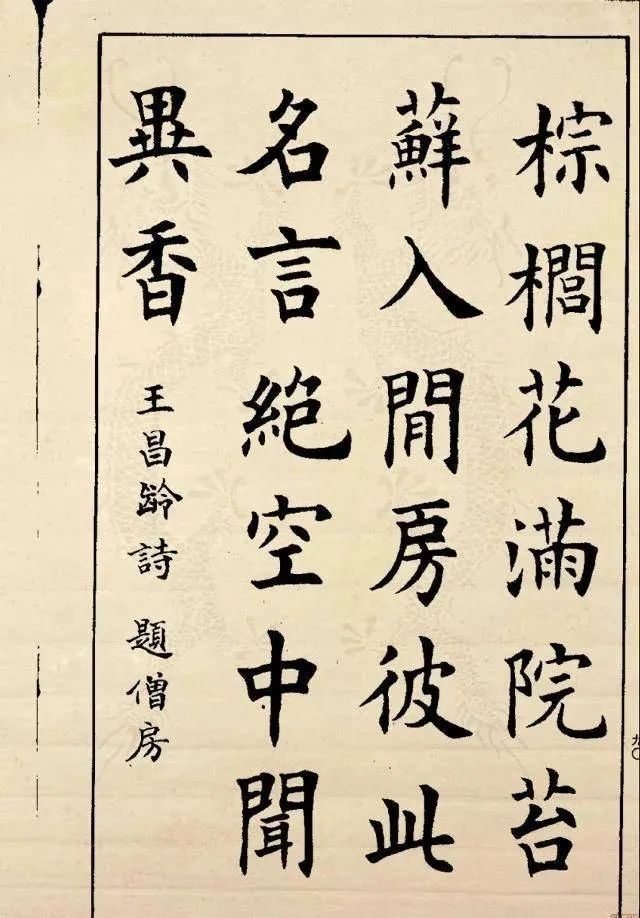 棕櫚花滿院苔
蘚入閒房彼此
名言絶空中聞
異香
王昌齡詩 題僧房
九〇